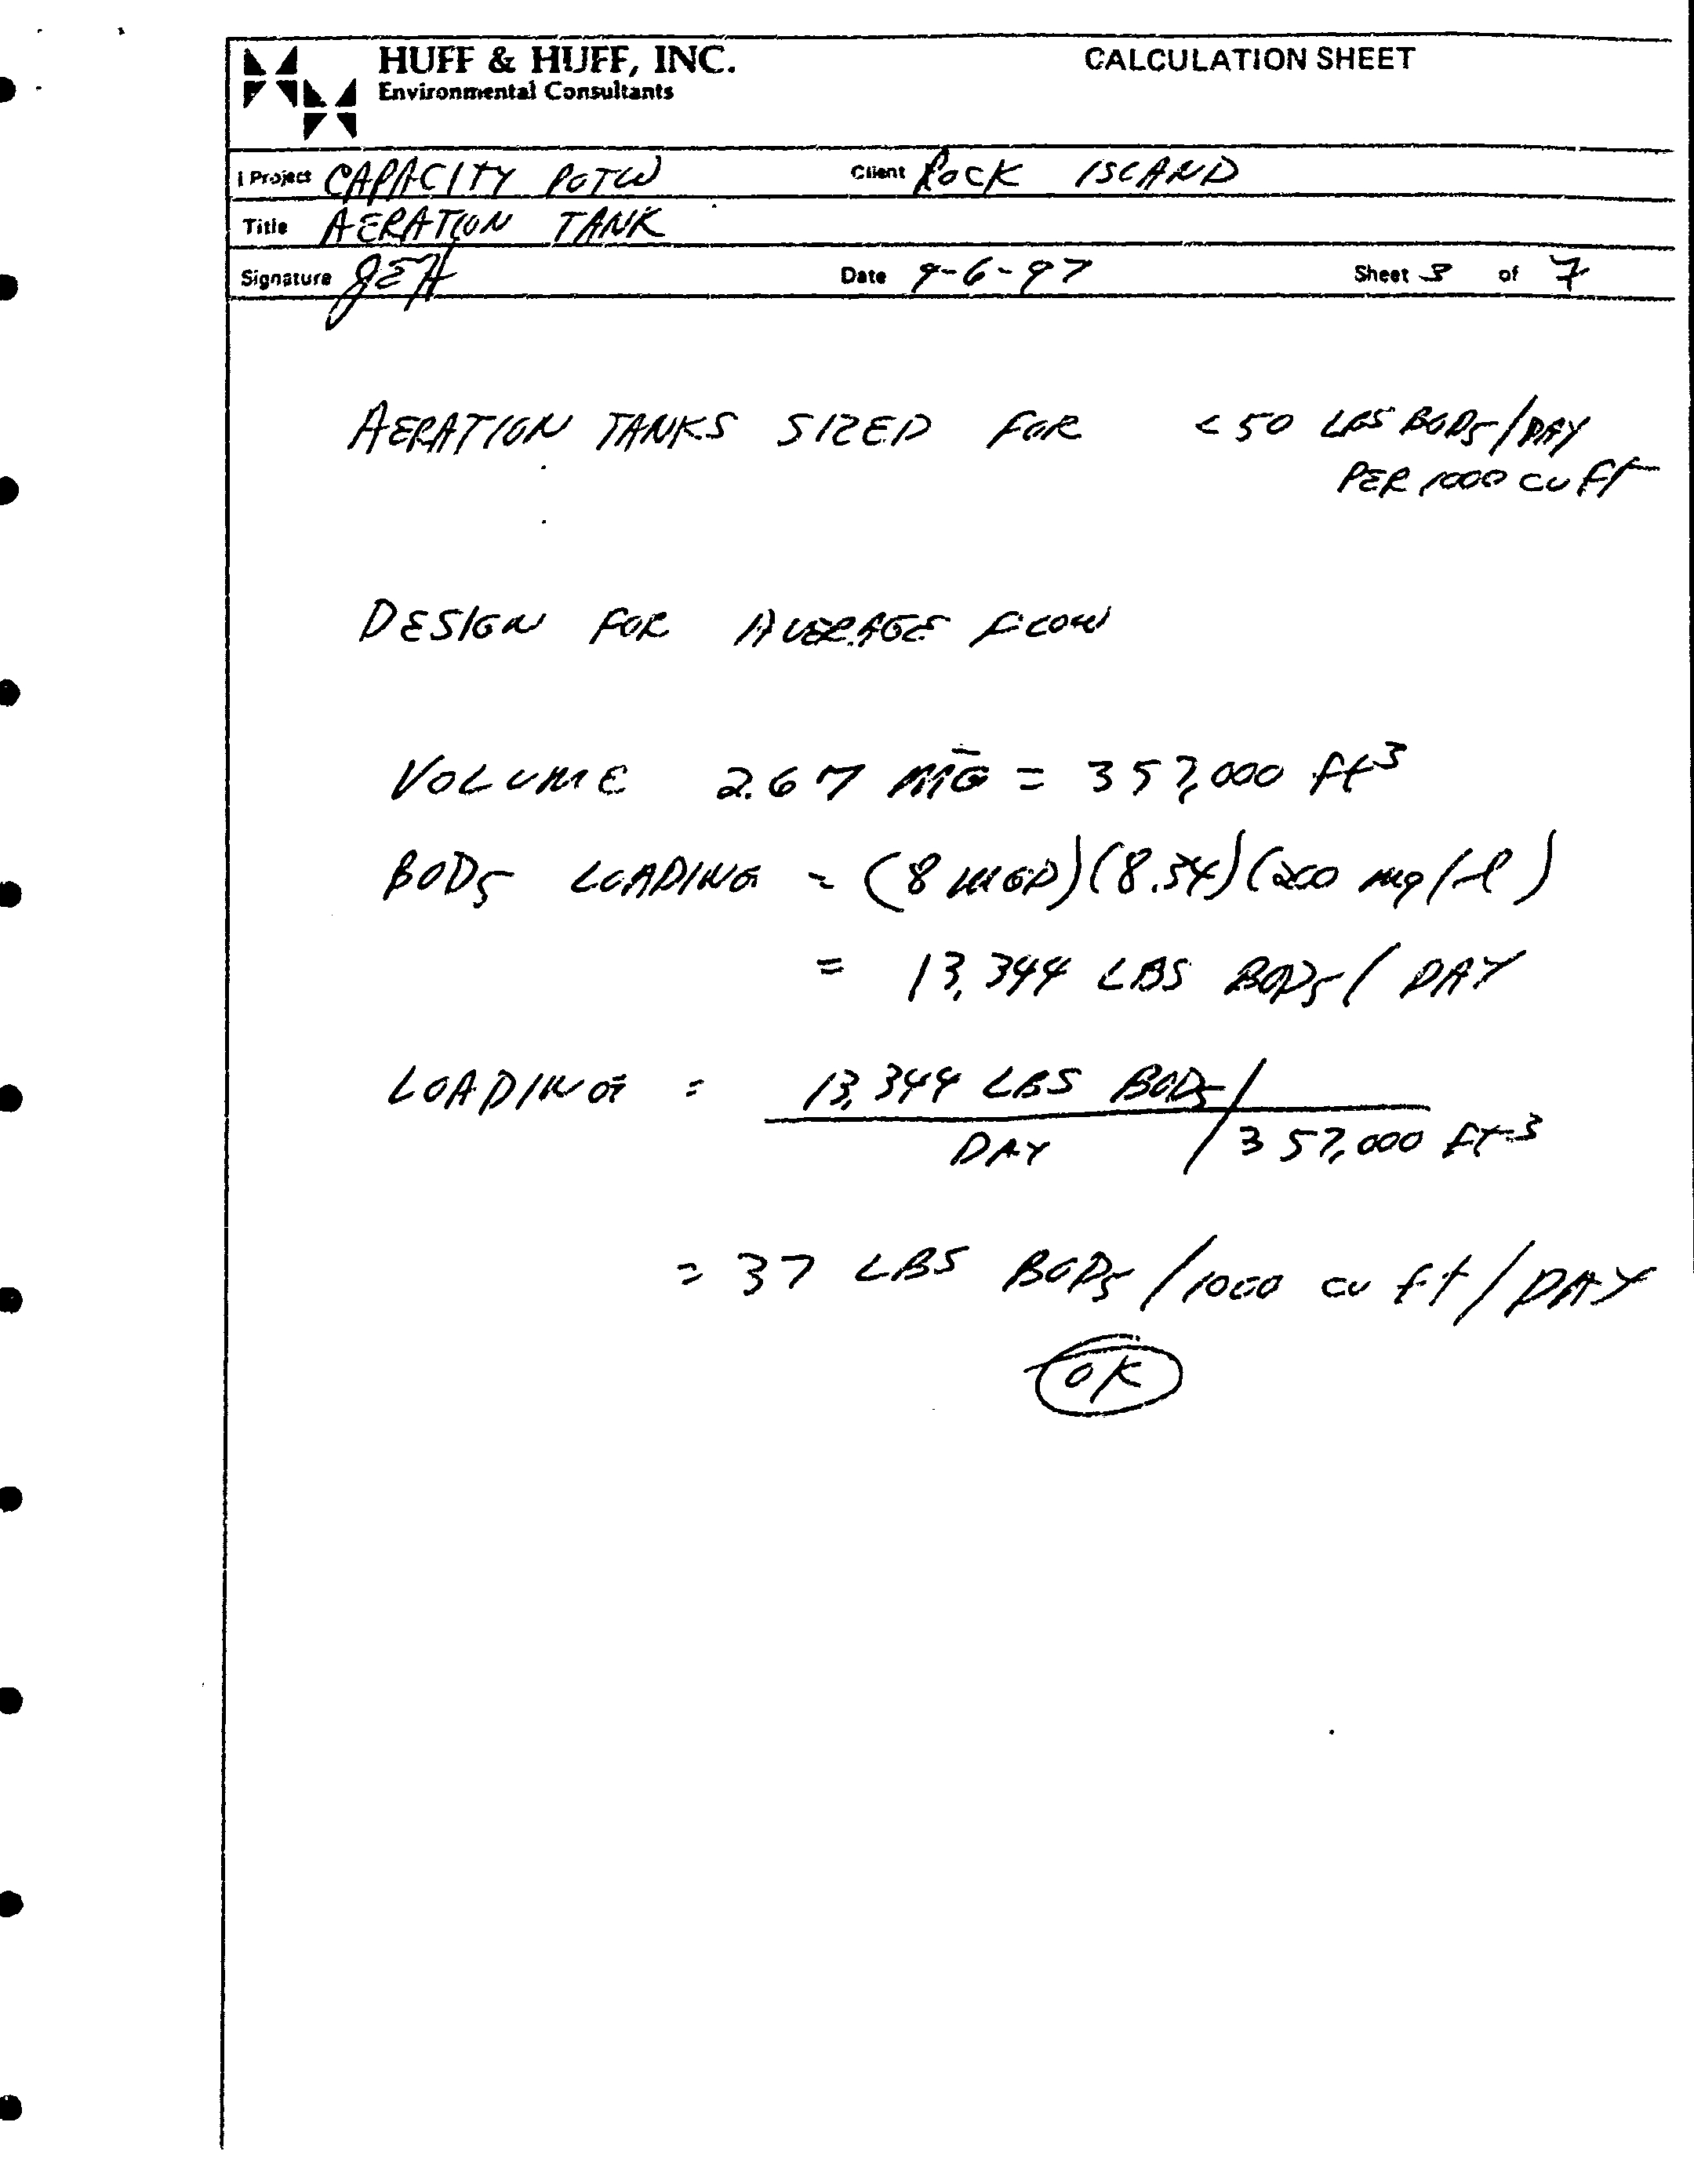 HUFF & HUFF, INC.
CALCULATION SHEET
Environmental Consultants
Project CAPACITY POTW Client ROCK ISLAND
Title AERATION TANK
Signature JEH Date 9-6-97 Sheet 3 of 7
AERATION TANKS SIZED FOR < 50 LBS BOD5/DAY
PER 1000 CU FT
DESIGN FOR AVERAGE FLOW
VOLUME 2.67 MG = 357,000 ft³
BOD5 LOADING = (8 MGD)(8.34)(200 mg/l)
= 13,344 LBS BOD5/DAY
LOADING = 13,344 LBS BOD5/
DAY / 357,000 FT3
= 37 LBS BOD5/1000 cu ft/DAY
OK